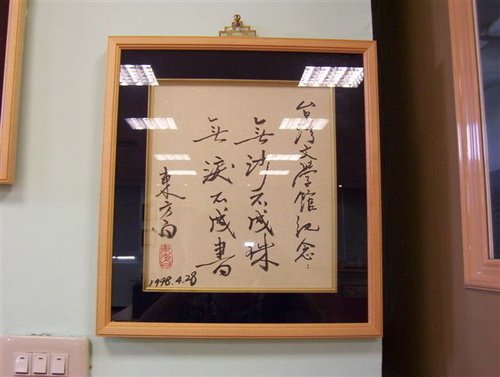 台湾文学館紀念：
無沙不成珠
無淚不成書
東方白
1998.4.28